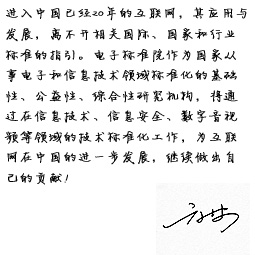 进入中国已经20年的互联网，其应用与
发展，离不开相关国际、国家和行业
标准的指引。电子标准院作为国家从
事电子和信息技术领域标准化的基础
性、公益性、综合性研究机构，得通
过在信息技术、信息安全、数字音视
频等领域的技术标准化工作，为互联
网在中国的进一步发展，继续做出自
己的贡献！